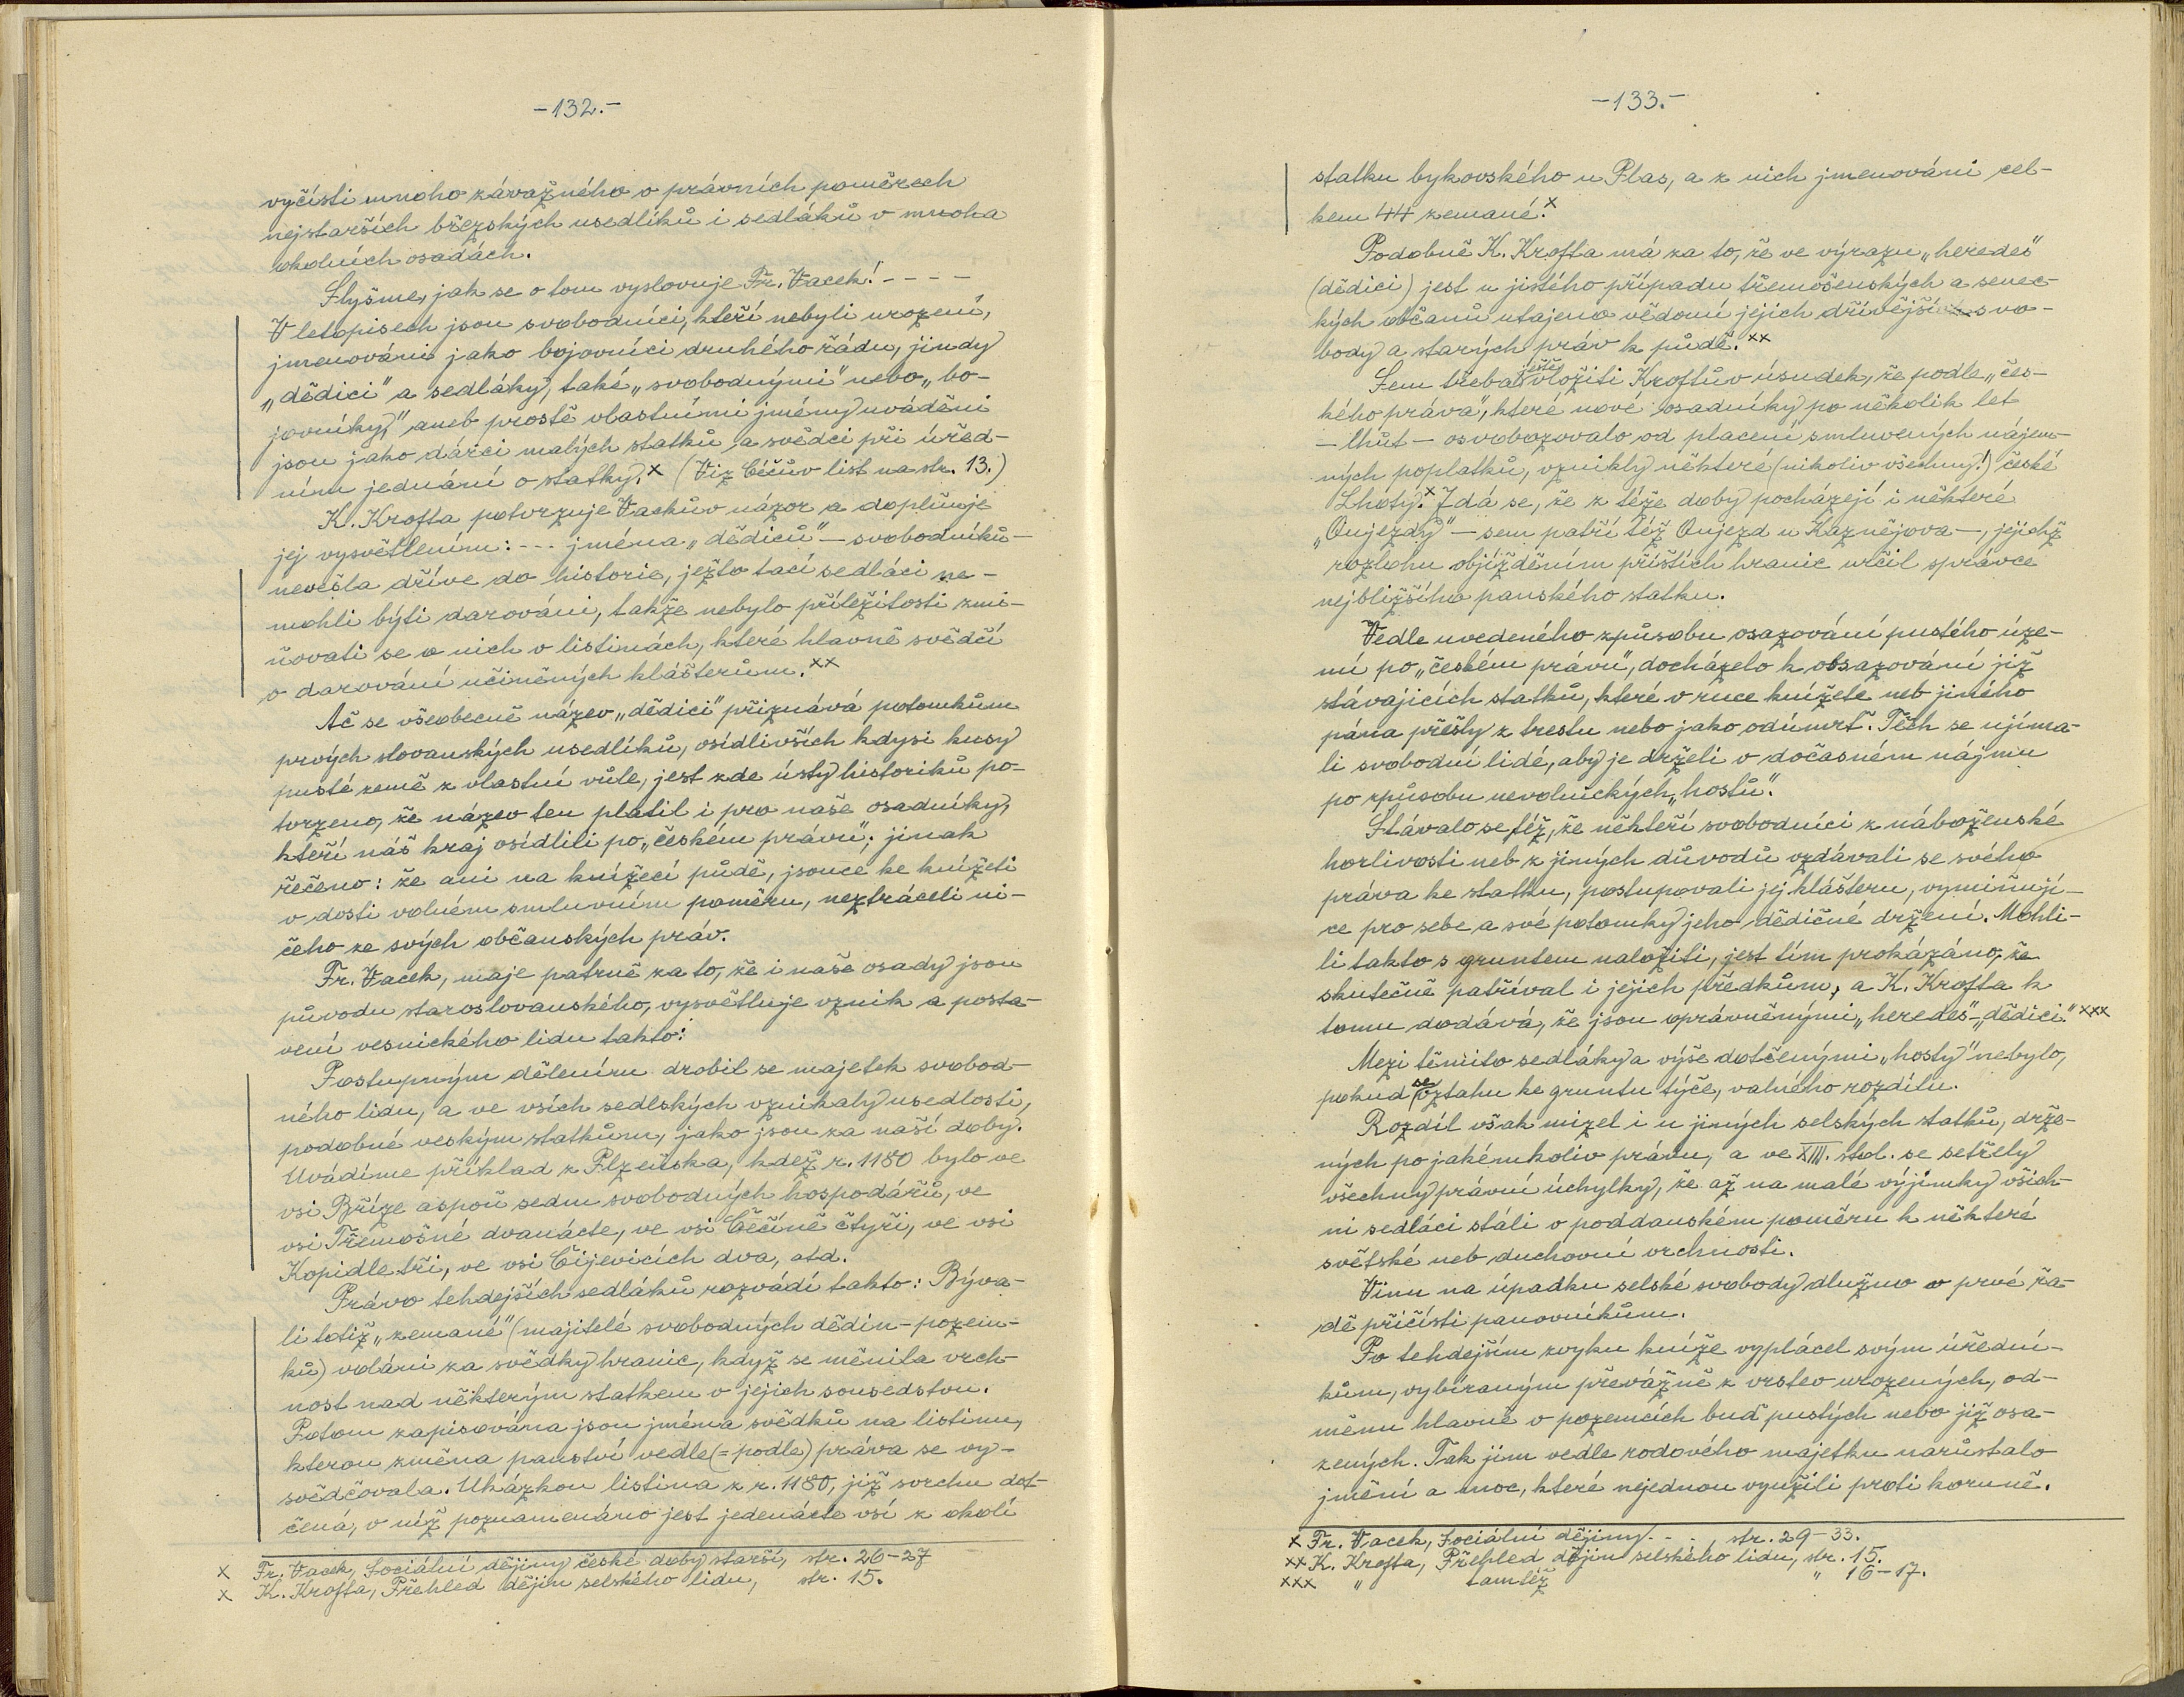 -132.-
vyčísti mnoho závažného o právních poměrech
nejstarších břízských usedlíků i sedláků v mnoha
okolních osadách.
Slyšme, jak se o tom vyslovuje Fr. Vacek! - - - -
V letopisech jsou svobodníci, kteří nebyli urození,
jmenováni jako bojovníci druhého řádu, jindy
„dědici" a sedláky, také „svobodnými" nebo „bo-
jovníky," aneb prostě vlastními jmény uváděni
jsou jako dárci malých statků a svědci při úřed-
ním jednání o statky.x (Viz Céčův list na str. 13.)
K. Krofta potvrzuje Vackův názor a doplňuje
jej vysvětlením: --- jména „dědiců" - svobodníků -
nevešla dříve do historie, ježto tací sedláci ne-
mohli býti darováni, takže nebylo příležitosti zmi-
ňovati se o nich v listinách, které hlavně svědčí
o darování učiněných klášterům.xx
Ač se všeobecně název „dědici" přiznává potomkům
prvých slovanských usedlíků, osídlivších kdysi kusy
pusté země z vlastní vůle, jest zde ústy historiků po-
tvrzeno, že název ten platil i pro naše osadníky,
kteří náš kraj osídlili po „českém právu"; jinak
řečeno: že ani na knížecí půdě, jsouce ke knížeti
v dosti volném smluvním poměru, neztráceli ni-
čeho ze svých občanských práv.
Fr. Vacek, maje patrně za to, že i naše osady jsou
původu staroslovanského, vysvětluje vznik a posta-
vení vesnického lidu takto:
Postupným dělením drobil se majetek svobod-
ného lidu, a ve vsích sedlských vznikaly usedlosti,
podobné veským statkům, jako jsou za naší doby.
Uvádíme příklad z Plzeňska, kdež r. 1180 bylo ve
vsi Bříze aspoň sedm svobodných hospodářů, ve
vsi Třemošné dvanácte, ve vsi Čečíně čtyři, ve vsi
Kopidle tři, ve vsi Čijevicích dva, atd.
Právo tehdejších sedláků rozvádí takto: Býva-
li totiž „zemané" (majitelé svobodných dědin - pozem-
ků) voláni za svědky hranic, když se měnila vrch-
nost nad některým statkem v jejich sousedstvu.
Potom zapisována jsou jména svědků na listinu,
kterou změna panství vedle (= podle) práva se vy-
svědčovala. Ukázkou listina z r. 1180, již svrchu dot-
čená, v níž poznamenáno jest jedenácte vsí z okolí
x Fr. Vacek, Sociální dějiny české doby starší, str. 26-27
x K. Krofta, Přehled dějin selského lidu, str. 15.
-133.-
statku bykovského u Plas, a z nich jmenováni cel-
kem 44 zemané.x
Podobně K. Krofta má za to, že ve výrazu „heredes"
(dědici) jest u jistého případu třemošenských a senec-
kých občanů utajeno vědomí jejich dřívější svo-
body a starých práv k půdě.xx
Sem třeba ještě vložiti Kroftův úsudek, že podle „čes-
kého práva", které nové osadníky po několik let
- lhůt - osvobozovalo od placení smluvených nájem-
ných poplatků, vznikly některé (nikoliv všechny!) české
Lhoty.x Zdá se, že z téže doby pocházejí i některé
„Oujezdy" - sem patří též Oujezd u Kaznějova -, jejichž
rozlohu objížděním příštích hranic určil správce
nejbližšího panského statku.
Vedle uvedeného způsobu osazování pustého úze-
mí po „českém právu", docházelo k obsazování již
stávajících statků, které v ruce knížete neb jiného
pána přešly z trestu nebo jako odúmrť. Těch se ujíma-
li svobodní lidé, aby je drželi v dočasném nájmu
po způsobu nevolnických „hostů."
Stávalo se též, že někteří svobodníci z náboženské
horlivosti neb z jiných důvodů vzdávali se svého
práva ke statku, postupovali jej klášteru, vymiňují-
ce pro sebe a své potomky jeho dědičné držení. Mohli-
li takto s gruntem naložiti, jest tím prokázáno, že
skutečně patříval i jejich předkům, a K. Krofta k
tomu dodává, že jsou oprávněnými „heredes" - „dědici." xxx
Mezi těmito sedláky a výše dotčenými „hosty" nebylo,
pokud se vztahu ke gruntu týče, valného rozdílu.
Rozdíl však mizel i u jiných selských statků, drže-
ných po jakémkoliv právu, a ve XIII. stol. se setřely
všechny právní úchylky, že až na malé výjimky všich-
ni sedláci stáli v poddanském poměru k některé
světské neb duchovní vrchnosti.
Vinu na úpadku selské svobody dlužno v prvé řa-
dě přičísti panovníkům.
Po tehdejším zvyku kníže vyplácel svým úřední-
kům, vybíraným převážně z vrstev urozených, od-
měnu hlavně v pozemcích buď pustých nebo již osa-
zených. Tak jim vedle rodového majetku narůstalo
jmění a moc, které nejednou využili proti koruně.
x Fr. Vacek, Sociální dějiny. - . , str. 29-33.
xx K. Krofta, Přehled dějin selského lidu, str. 15.
xxx " tamtéž " 16-17.